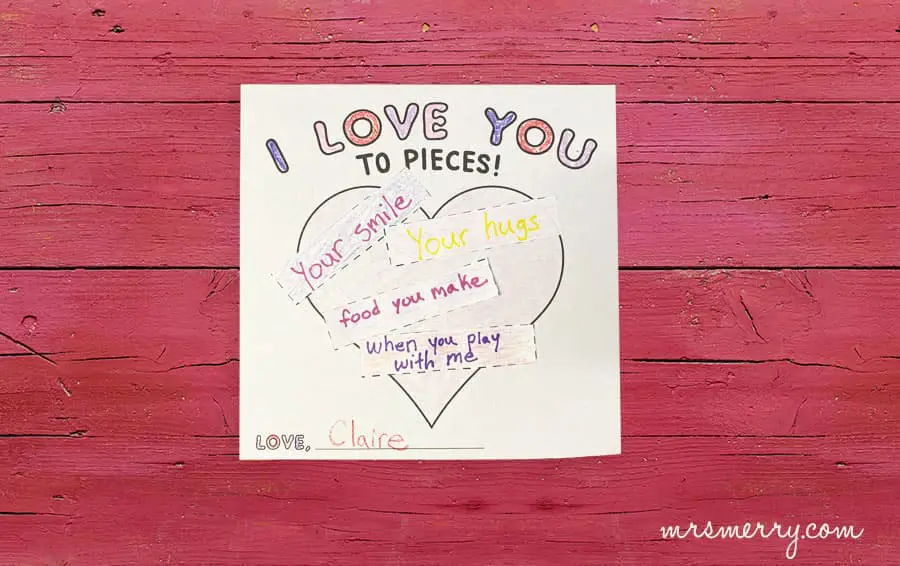 I LOVE YOU
TO PIECES!
Your smile
Your hugs
food you make
when you play
with me
LOVE, Claire
mrsmerry.com